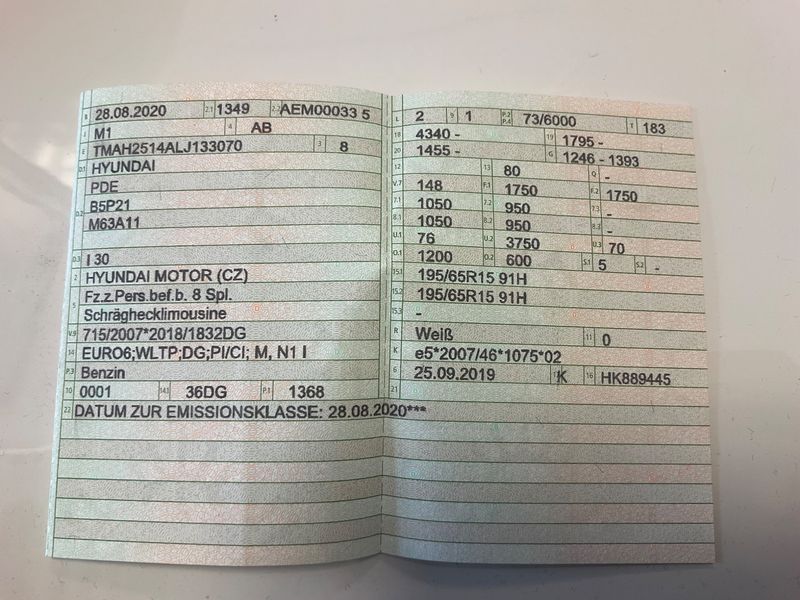 B 28.08.2020 2.1 1349 2.2 AEM00033 5
J M1 4 AB
E TMAH2514ALJ133070 3 8
D.1 HYUNDAI
PDE
D.2 B5P21
M63A11
D.3 I 30
2 HYUNDAI MOTOR (CZ)
5 Fz.z.Pers.bef.b. 8 Spl.
Schräghecklimousine
V.9 715/2007*2018/1832DG
14 EURO6;WLTP;DG;PI/CI; M, N1 I
P.3 Benzin
10 0001 14.1 36DG P.1 1368
22 DATUM ZUR EMISSIONSKLASSE: 28.08.2020***
L 2 9 1 P.2 P.4 73/6000 T 183
18 4340 - 19 1795 -
20 1455 - G 1246 - 1393
12 13 80 Q -
V.7 148 F.1 1750 F.2 1750
7.1 1050 7.2 950 7.3 -
8.1 1050 8.2 950 8.3 -
U.1 76 U.2 3750 U.3 70
O.1 1200 O.2 600 S.1 5 S.2 -
15.1 195/65R15 91H
15.2 195/65R15 91H
15.3 -
R Weiß 11 0
K e5*2007/46*1075*02
6 25.09.2019 17 K 16 HK889445
21